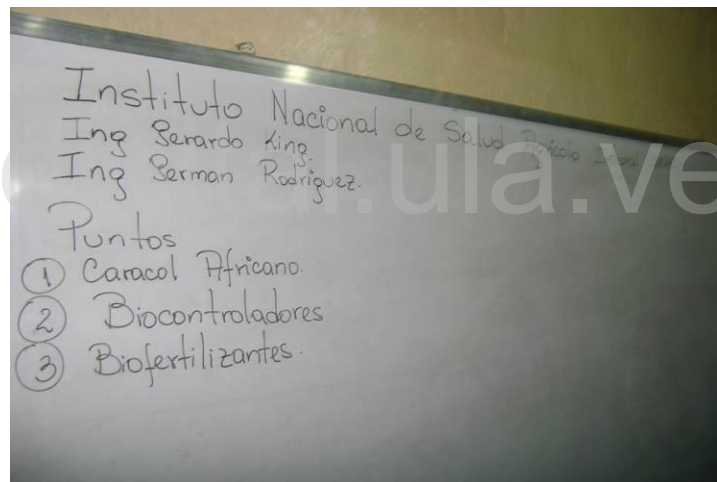 Instituto Nacional de Salud Agricola
Ing Gerardo King.
Ing German Rodriguez.
Puntos
① Caracol Africano.
② Biocontroladores
③ Biofertilizantes.
.ula.ve